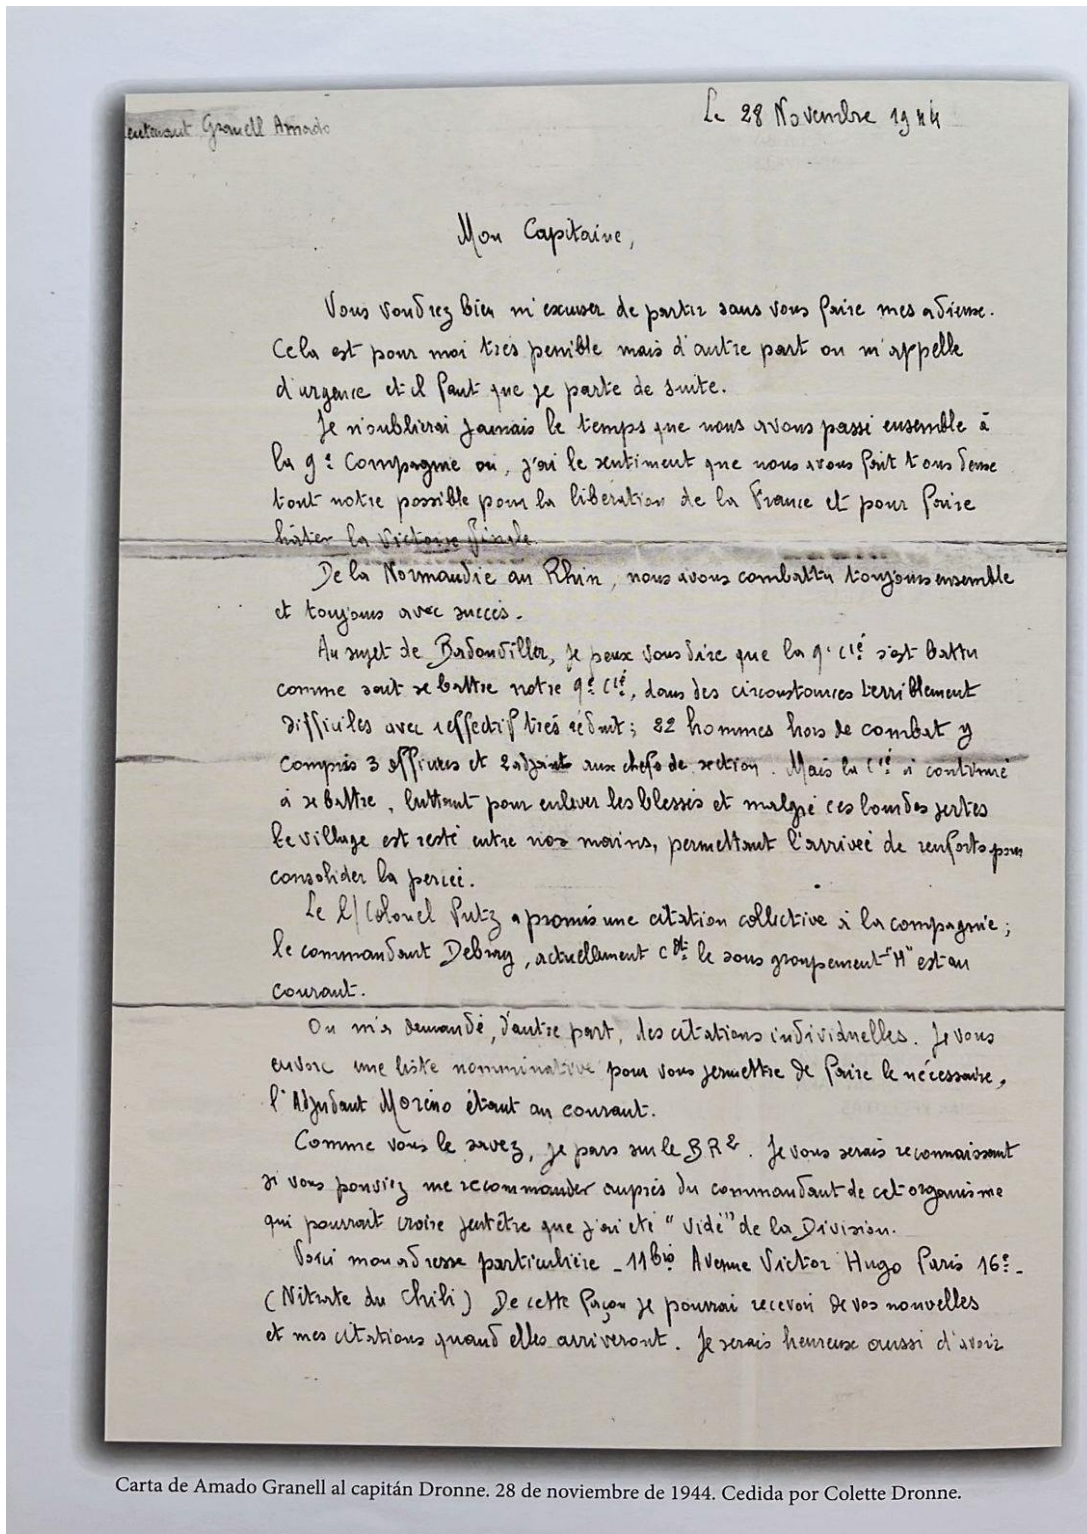 Lieutenant Granell Amado
Le 28 Novembre 1944
Mon Capitaine,
Vous voudrez bien m'excuser de partir sans vous faire mes adieux.
Cela est pour moi très penible mais d'autre part on m'appelle
d'urgence et il faut que je parte de suite.
Je n'oublierai jamais le temps que nous avons passé ensemble à
la 9e Compagnie ou, j'ai le sentiment que nous avons fait tous deux
tout notre possible pour la libération de la France et pour faire
hâter la Victoire finale.
De la Normandie au Rhin, nous avons combattu toujours ensemble
et toujours avec succès.
Au sujet de Badonviller, je peux vous dire que la 9e Cie s'est battu
comme sait se battre notre 9e Cie, dans des circonstances terriblement
difficiles avec effectif très réduit; 22 hommes hors de combat y
compris 3 officiers et 2 adjoint aux chefs de section. Mais la Cie a continué
à se battre, luttant pour enlever les blessés et malgré ces lourdes pertes
le village est resté entre nos mains, permettant l'arrivée de renforts pour
consolider la percée.
Le l/Colonel Putz a promis une citation collective à la compagnie;
le commandant Debray, actuellement Cdt le sous groupement "M" est au
courant.
On m'a demandé, d'autre part, des citations individuelles. Je vous
envoie une liste nomminative pour vous permettre de faire le nécessaire,
l'Adjudant Moreno étant au courant.
Comme vous le savez, je pars sur le BR2. Je vous serais reconnaissant
si vous pouviez me recommander auprès du commandant de cet organisme
qui pourrait croire peut être que j'ai été "vidé" de la Division.
Voici mon adresse particulière - 11bis Avenue Victor Hugo Paris 16e -
(Nitrate du Chili) De cette façon je pourrai recevoir de vos nouvelles
et mes citations quand elles arriveront. Je serais heureux aussi d'avoir
Carta de Amado Granell al capitán Dronne. 28 de noviembre de 1944. Cedida por Colette Dronne.